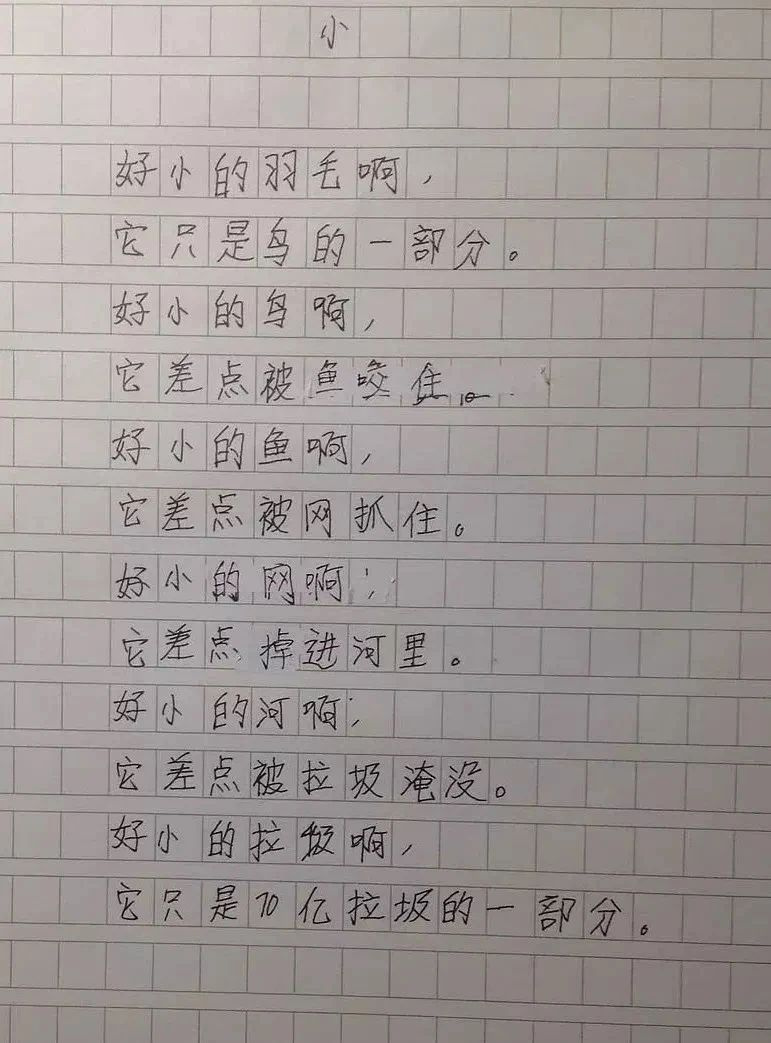 小
好小的羽毛啊，
它只是鸟的一部分。
好小的鸟啊，
它差点被鱼咬住。
好小的鱼啊，
它差点被网抓住。
好小的网啊，
它差点掉进河里。
好小的河啊，
它差点被垃圾淹没。
好小的垃圾啊，
它只是70亿垃圾的一部分。